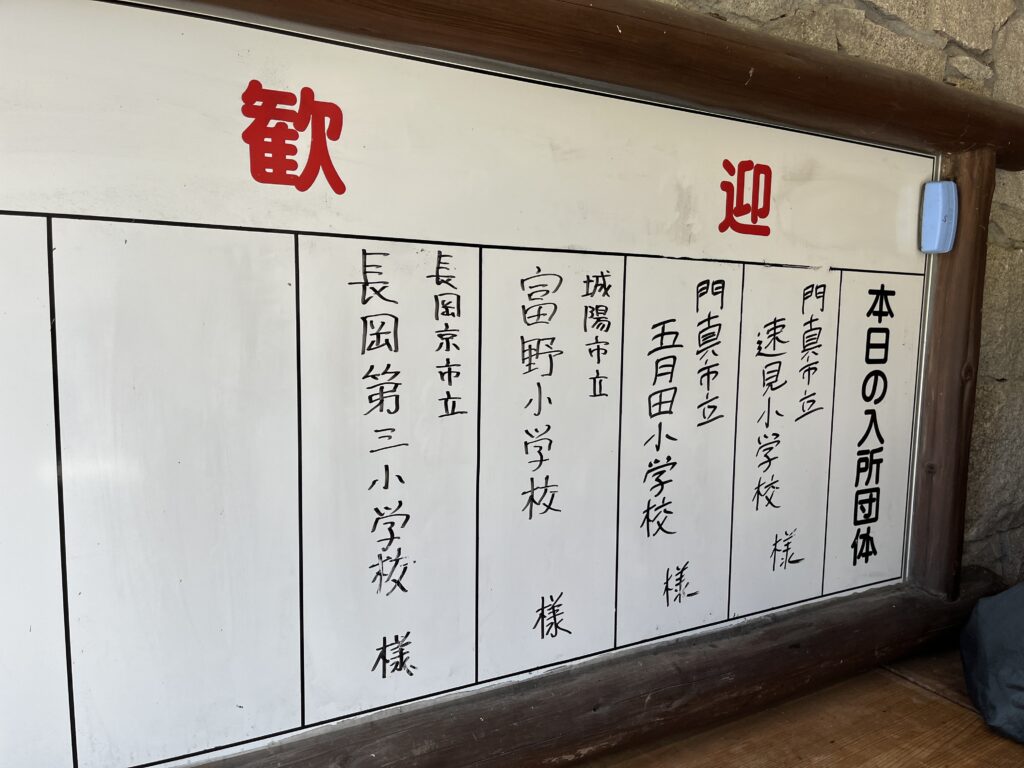 歓迎
本日の入所団体
門真市立
速見小学校 様
門真市立
五月田小学校 様
城陽市立
富野小学校 様
長岡京市立
長岡第三小学校 様